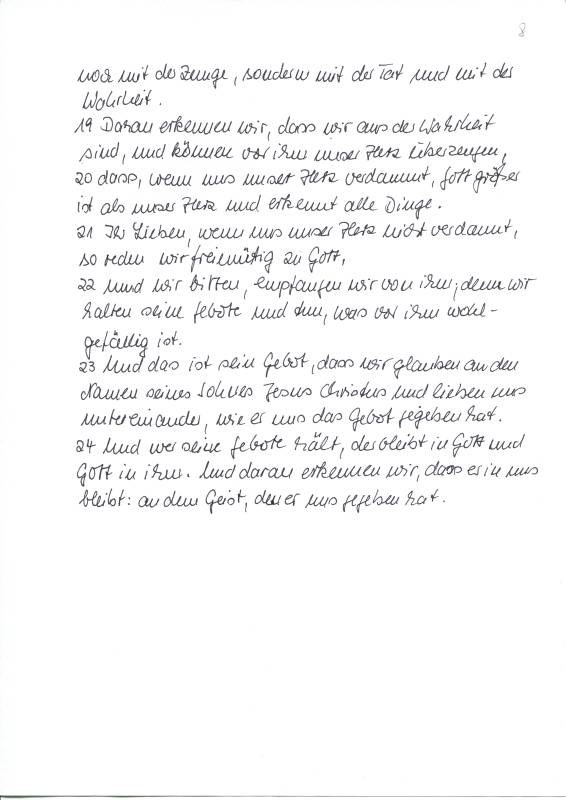 8
noch mit der Zunge, sondern mit der Tat und mit der
Wahrheit.
19 Daran erkennen wir, dass wir aus der Wahrheit
sind, und können vor ihm unser Herz überzeugen,
20 dass, wenn uns unser Herz verdammt, Gott größer
ist als unser Herz und erkennt alle Dinge.
21 Ihr Lieben, wenn uns unser Herz nicht verdammt,
so reden wir freimütig zu Gott,
22 und wir bitten, empfangen wir von ihm; denn wir
halten seine Gebote und tun, was vor ihm wohl-
gefällig ist.
23 Und das ist sein Gebot, dass wir glauben an den
Namen seines Sohnes Jesus Christus und lieben uns
untereinander, wie er uns das Gebot gegeben hat.
24 Und wer seine Gebote hält, der bleibt in Gott und
Gott in ihm. Und daran erkennen wir, dass er in uns
bleibt: an dem Geist, den er uns gegeben hat.